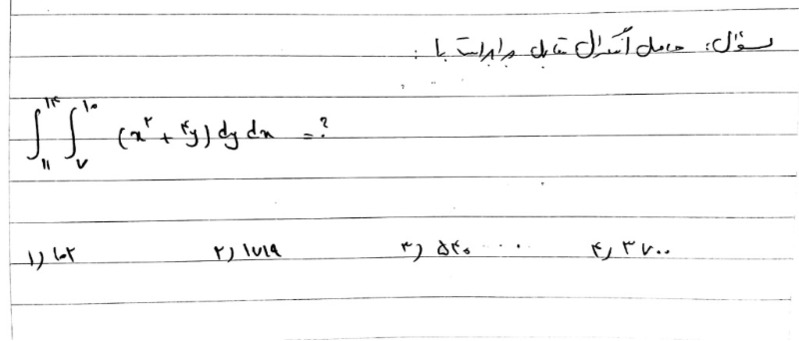 سؤال: حاصل انتگرال مقابل برابر است با :
∫_۱۱^۱۴ ∫_۷^۱۰ (x^۲ + ۴y) dy dx = ?
۱) ۱۰۲ ۲) ۱۷۱۹ ۳) ۵۴۰ ۴) ۳۷۰۰